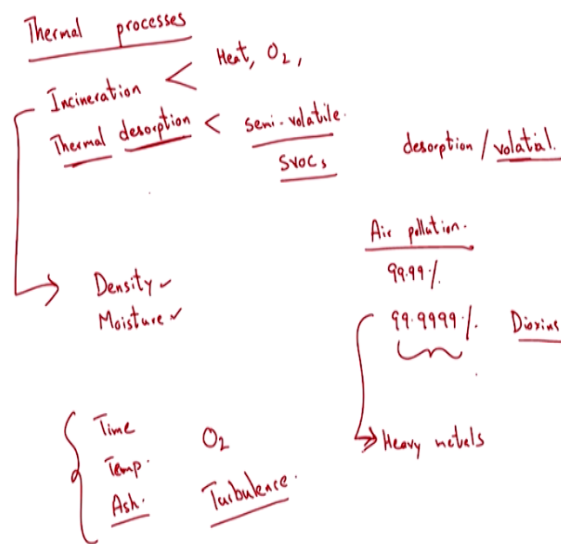 Thermal processes
Incineration < Heat, O₂,
Thermal desorption < semi-volatile.
SVOCs
desorption / volatial.
Air pollution.
99.99%
99.9999%. Dioxins
Heavy metals
Density ✓
Moisture ✓
Time O₂
Temp.
Ash. Turbulence.